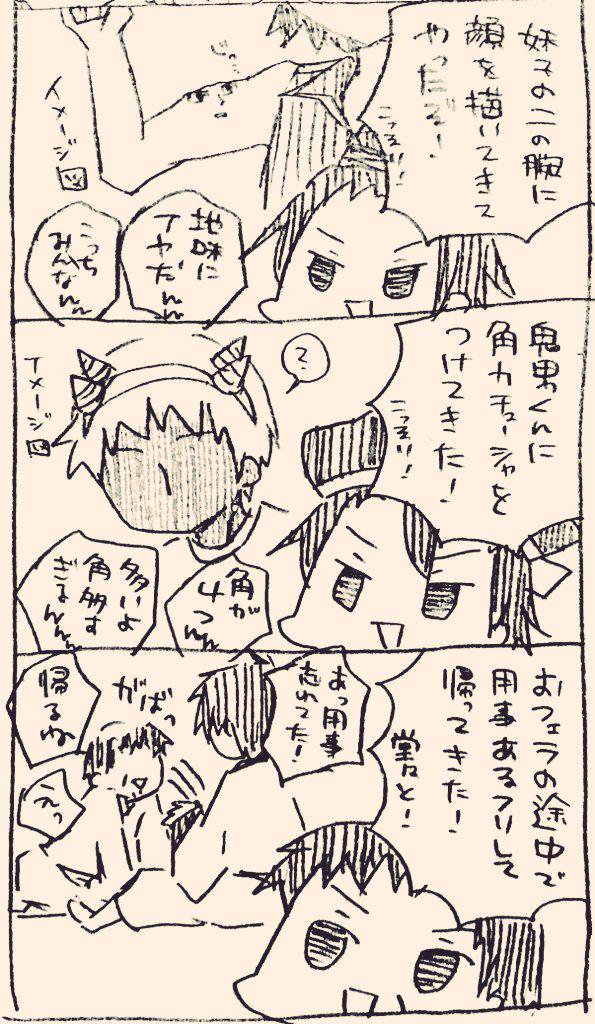 妹子の二の腕に
顔を描いてきて
やったぞ!
こっそり!
イメージ図
地味に
アヤだんん
こっち
みんなんん
鬼男くんに
角カチューシャを
つけてきた!
こっそり!
?
イメージ図
角が
4つんん
多いよ
角多す
ぎるんんん
おフェラの途中で
用事あるフリして
帰ってきた!
堂々と!
あっ用事
忘れてた!
がばっ
帰るね
えっ